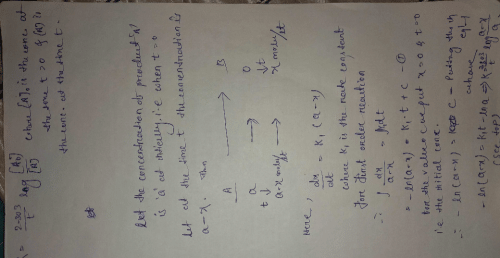 = 2.303/t log [A₀]/[A] where [A]₀ is the conc. at
the time t=0 & [A] is
the conc. at the time t.
Let the concentration of product 'A'
is 'a' at initially, i.e when t=0
Let at the time t the concentration is
a-x. Then
A → B
a → 0
t↓ t↓
a-x mol/lt → x mol/lt
Here, dx/dt = K₁ (a-x)
where K₁ is the rate constant
for first order reaction
∴ ∫ dx/a-x = K₁dt
= -ln(a-x) = K₁·t + C - ①
for the value of C we put x=0 & t=0
i.e the initial conc.
∴ -ln(a-x) = C - Putting the in
eqn-1
we have
-ln(a-x) = K₁t - ln a ⇒